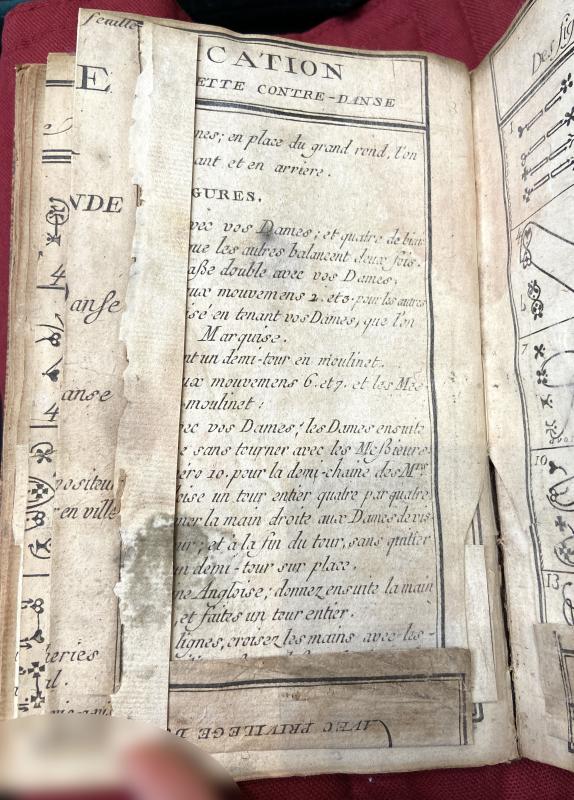 feuille
E
NDE
anse
anse
positeur
en ville
heries
al.
CATION
ETTE CONTRE-DANSE
nes; en place du grand rond, l'on
ant et en arriere.
GURES.
vec vos Dames; et quatre de biais
que les autres balancent deux fois.
aße double avec vos Dames,
ux mouvemens 2. et 3. pour les autres
se en tenant vos Dames, que l'on
Marquise.
nt un demi-tour en moulinet.
ux mouvemens 6. et 7. et les Mes-
moulinet:
ec vos Dames; les Dames ensuite
e sans tourner avec les Meßieurs
éro 10. pour la demi-chaine des Mrs
oise un tour entier quatre par quatre
ner la main droite aux Dames de vis
ur; et à la fin du tour, sans quitter
n demi-tour sur place.
ne Angloise; donnez ensuite la main
et faites un tour entier.
lignes, croisez les mains avec les
AVEC PRIVILEGE D
Des fig
1
4
7
10
13